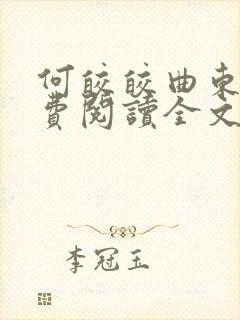 何皎皎曲東
費閱讀全文
李冠玉